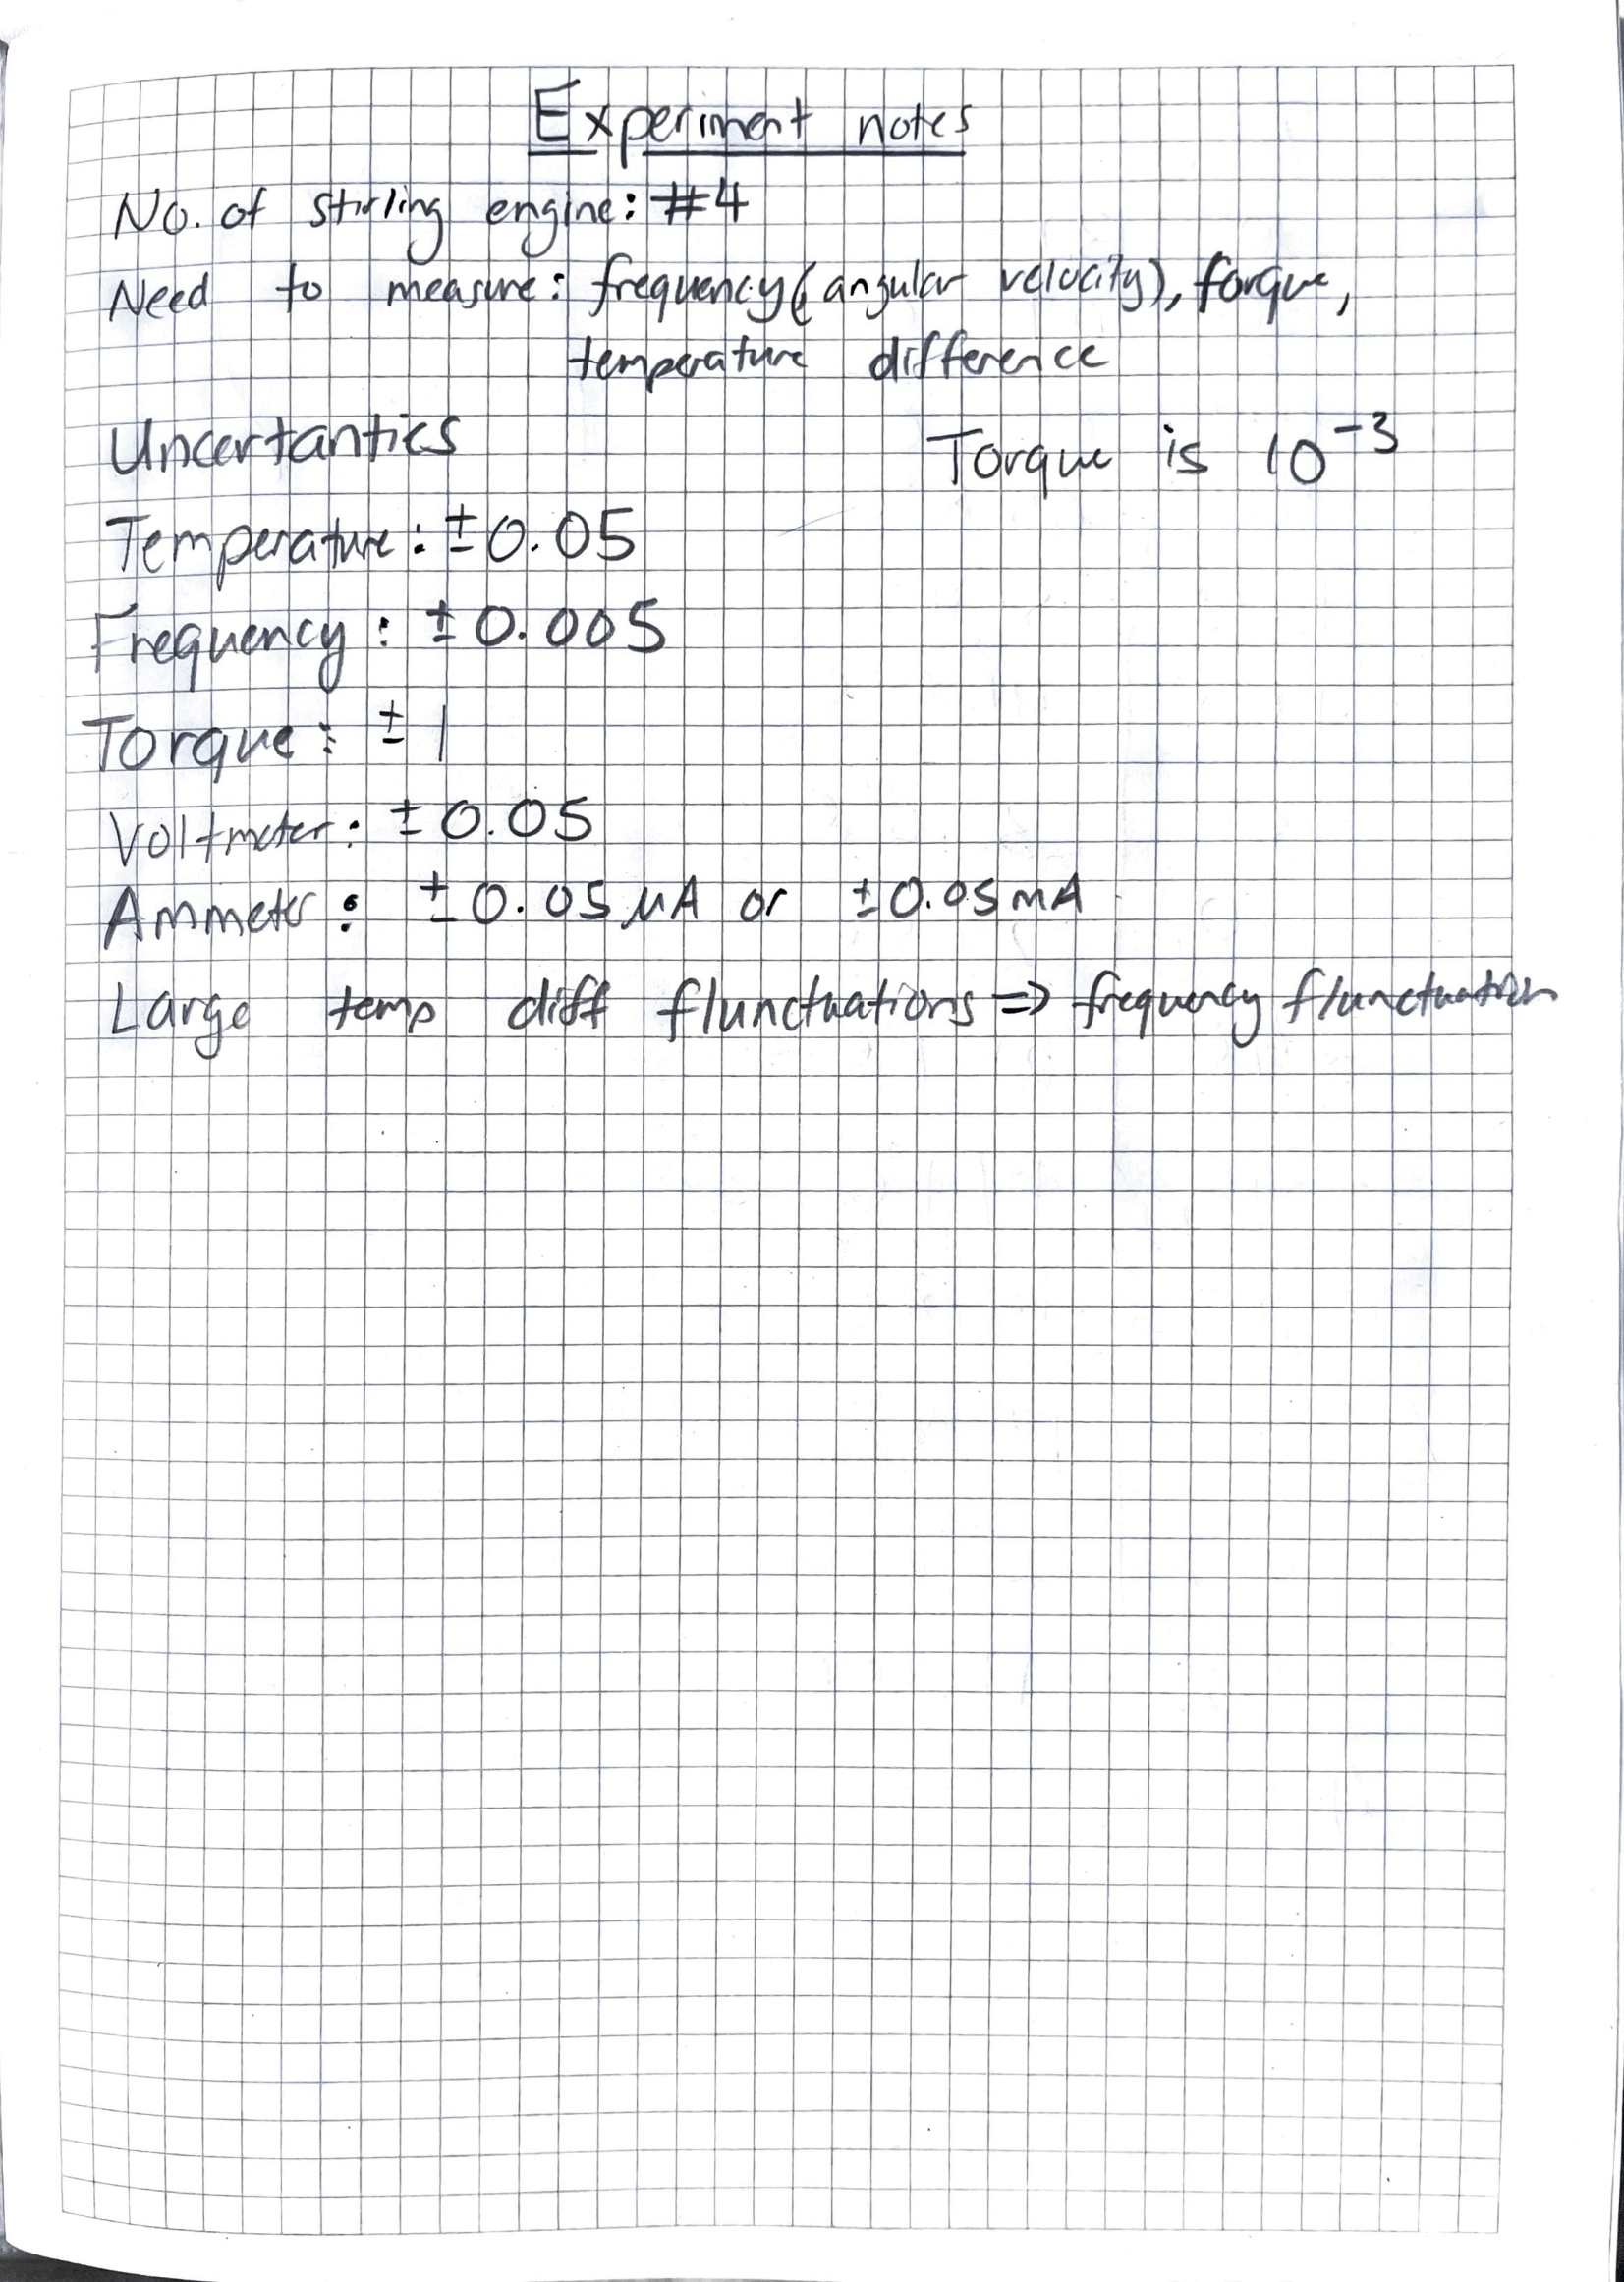 Experiment notes
No. of stirling engine: #4
Need to measure: frequency (angular velocity), torque,
temperature difference
Uncertanties
Torque is 10⁻³
Temperature: ±0.05
Frequency: ±0.005
Torque: ±1
Voltmeter: ±0.05
Ammeter: ±0.05 μA or ±0.05 mA
Large temp diff flunctuations => frequency flunctuation